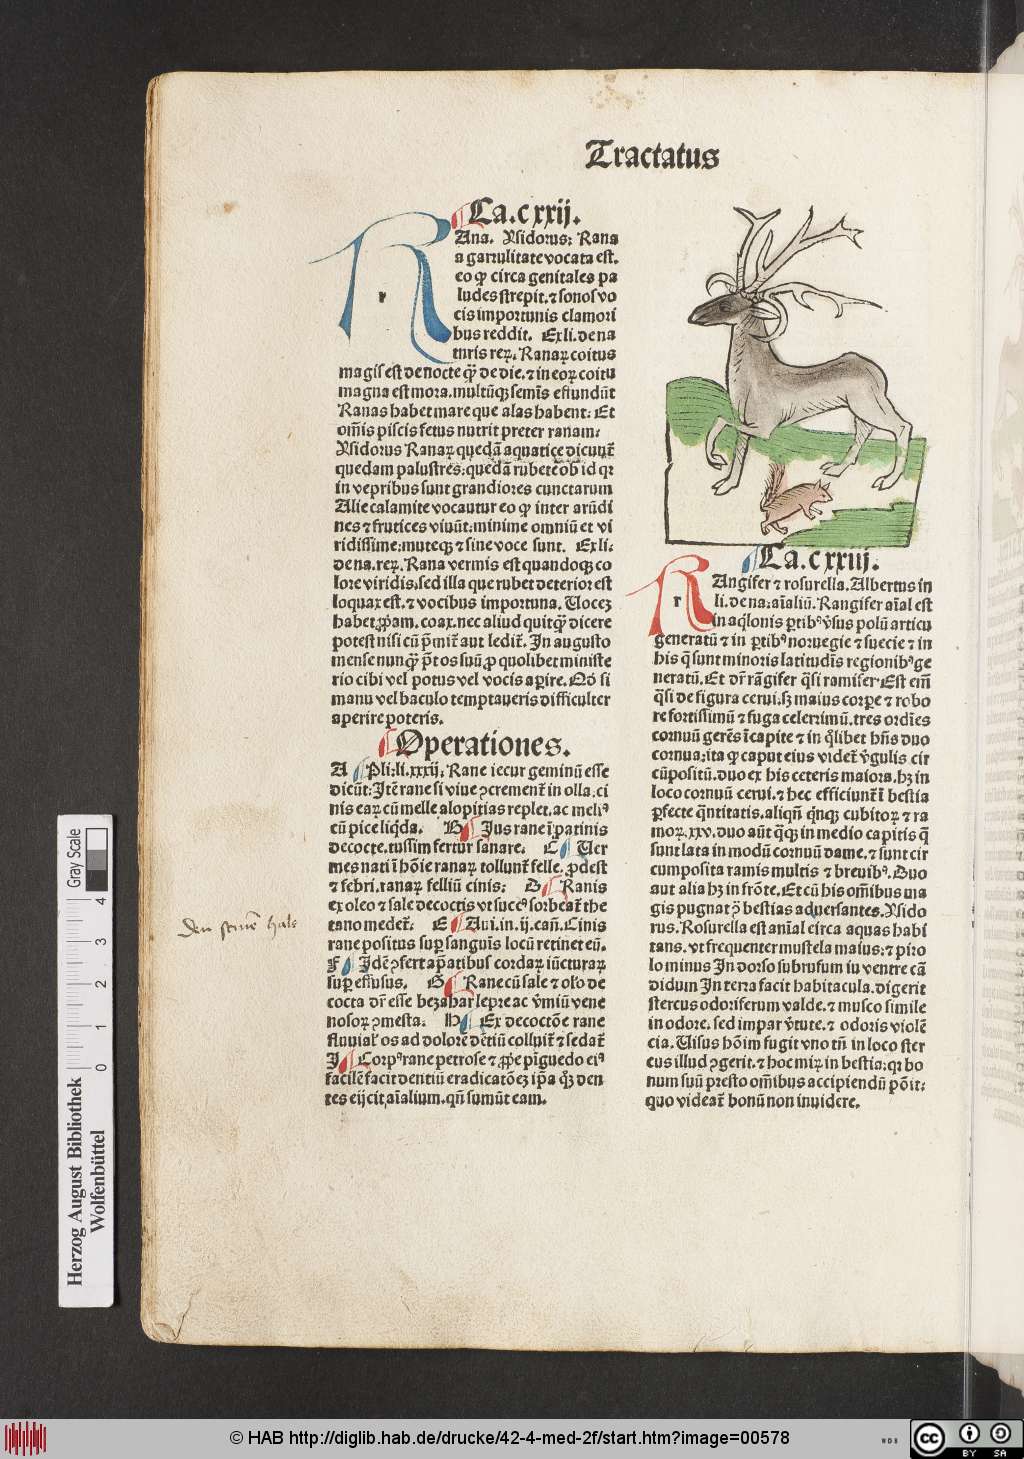 Tractatus
Ca.cxxij.
R
r
Ana. Ysidorus: Rana
a garrulitate vocata est.
eo ꝙ circa genitales pa
ludes strepit.⁊ sonos vo
cis importunis clamori
bus reddit. Ex li.de na
turis reꝝ. Ranaꝝ coitus
magis est de nocte q̄ꝫ de die.⁊ in eoꝝ coitu
magna est mora.multūqꝫ semīs effundūt
Ranas habet mare que alas habent: Et
om̄is piscis fetus nutrit preter ranam:
Ysidorus Ranaꝝ quedā aquatice dicunt̄
quedam palustres:quedā rubete ob id qꝛ
in vepribus sunt grandiores cunctarum
Alie calamite vocantur eo ꝙ inter arūdi
nes ⁊ frutices viuūt:minime omniū et vi
ridissime:muteqꝫ ⁊ sine voce sunt. Ex li:
de na.reꝝ. Rana vermis est quandoqꝫ co
lore viridis:sed illa que rubet deterior est
loquax est.⁊ vocibus importuna. Uocez
habet ꝓpam.coax.nec aliud quitq̄ꝫ dicere
potest nisi cū p̄mit̄ aut ledit̄. In augusto
mense nunq̄ꝫ p̄t os suū ꝓ quolibet ministe
rio cibi vel potus vel vocis aꝑire. Qd̄ si
manu vel baculo temptaueris difficulter
aperire poteris.
Operationes.
A Pli:li.xxxij: Rane iecur geminū esse
dicūt: Itē rane si viue ꝯcrement̄ in olla:ci
nis eaꝝ cū melle alopitias replet.ac meliꝰ
cū pice liq̇da. B Ius rane ī patinis
decocte.tussim fertur sanare: C Uer
mes nati ī hoīe ranaꝝ tollunt̄ felle. ꝓdest
⁊ febri.ranaꝝ felliū cinis: D Ranis
ex oleo ⁊ sale decoctis vt succꝰ sorbeat̄ the
tano medet̄: E Aui.in.ij.can̄. Cinis
rane positus suꝑ sanguīs locū retinet eū.
F Idē ꝯfert ap̄atibus cordaꝝ iūcturaꝝ
suꝑ effusus. G Rane cū sale ⁊ oło de
cocta dr̄ esse bezahar lepre ac v̄miū vene
nosoꝝ ꝯmesta: H Ex decoctōe rane
fluuial̓ os ad dolorē dētiū colluit̄ ⁊ sedat̄
I Corpꝰ rane petrose ⁊ ꝓpe pīguedo eiꝰ
facilē facit dentiū eradicatōeꝫ ip̄a q̇ꝫ den
tes eijcit aīalium.qn̄ sumūt eam.
den screuē hals
Ca.cxxiij.
R
r
Angifer ⁊ rosurella.Albertus in
li.de na:aīaliū. Rangifer aīal est
in aq̇lonis ꝑtibꝰ v̓sus polū articū
generatū ⁊ in ꝑtibꝰ noruegie ⁊ suecie ⁊ in
his q̄ sunt minoris latitudīs regionibꝰ ge
neratū. Et dr̄ rāgifer q̄si ramifer Est em̄
q̄si de figura cerui.sꝫ maius corꝑe ⁊ robo
re fortissimū ⁊ fuga celerrimū.tres ordīes
cornuū gerēs ī capite ⁊ in q̇libet hn̄s duo
cornua:ita ꝙ caput eius videt̄ v̓gulis cir
cūpositū.duo ex his ceteris maiora.hꝫ in
loco cornuū cerui.⁊ hec efficiunt̄ ī bestia
ꝑfecte q̄ntitatis.aliqn̄ q̇nqꝫ cubitoꝝ ⁊ ra
moꝝ.xxv.duo aūt q̄qꝫ in medio capitis q̄
sunt lata in modū cornuū dame.⁊ sunt cir
cumposita ramis multis ⁊ breuibꝰ. Duo
aut alia hꝫ in frōte. Et cū his om̄ibus ma
gis pugnat ꝯ bestias aduersantes. Ysido
rus. Rosurella est anīal circa aquas habi
tans. vt frequenter mustela maius:⁊ piro
lo minus In dorso subrufum in ventre cā
didum In terra facit habitacula.digerit
stercus odoriferum valde.⁊ musco simile
in odore.sed impar v̓tute.⁊ odoris violē
cia. Uisus hōim fugit vno tn̄ in loco ster
cus illud ꝯgerit.⁊ hoc miꝝ in bestia:qꝛ bo
num suū presto om̄ibus accipiendū pōit:
quo videat̄ bonū non inuidere.
Gray Scale
4
3
2
1
0
Herzog August Bibliothek
Wolfenbüttel
© HAB http://diglib.hab.de/drucke/42-4-med-2f/start.htm?image=00578
WDB
cc
BY SA